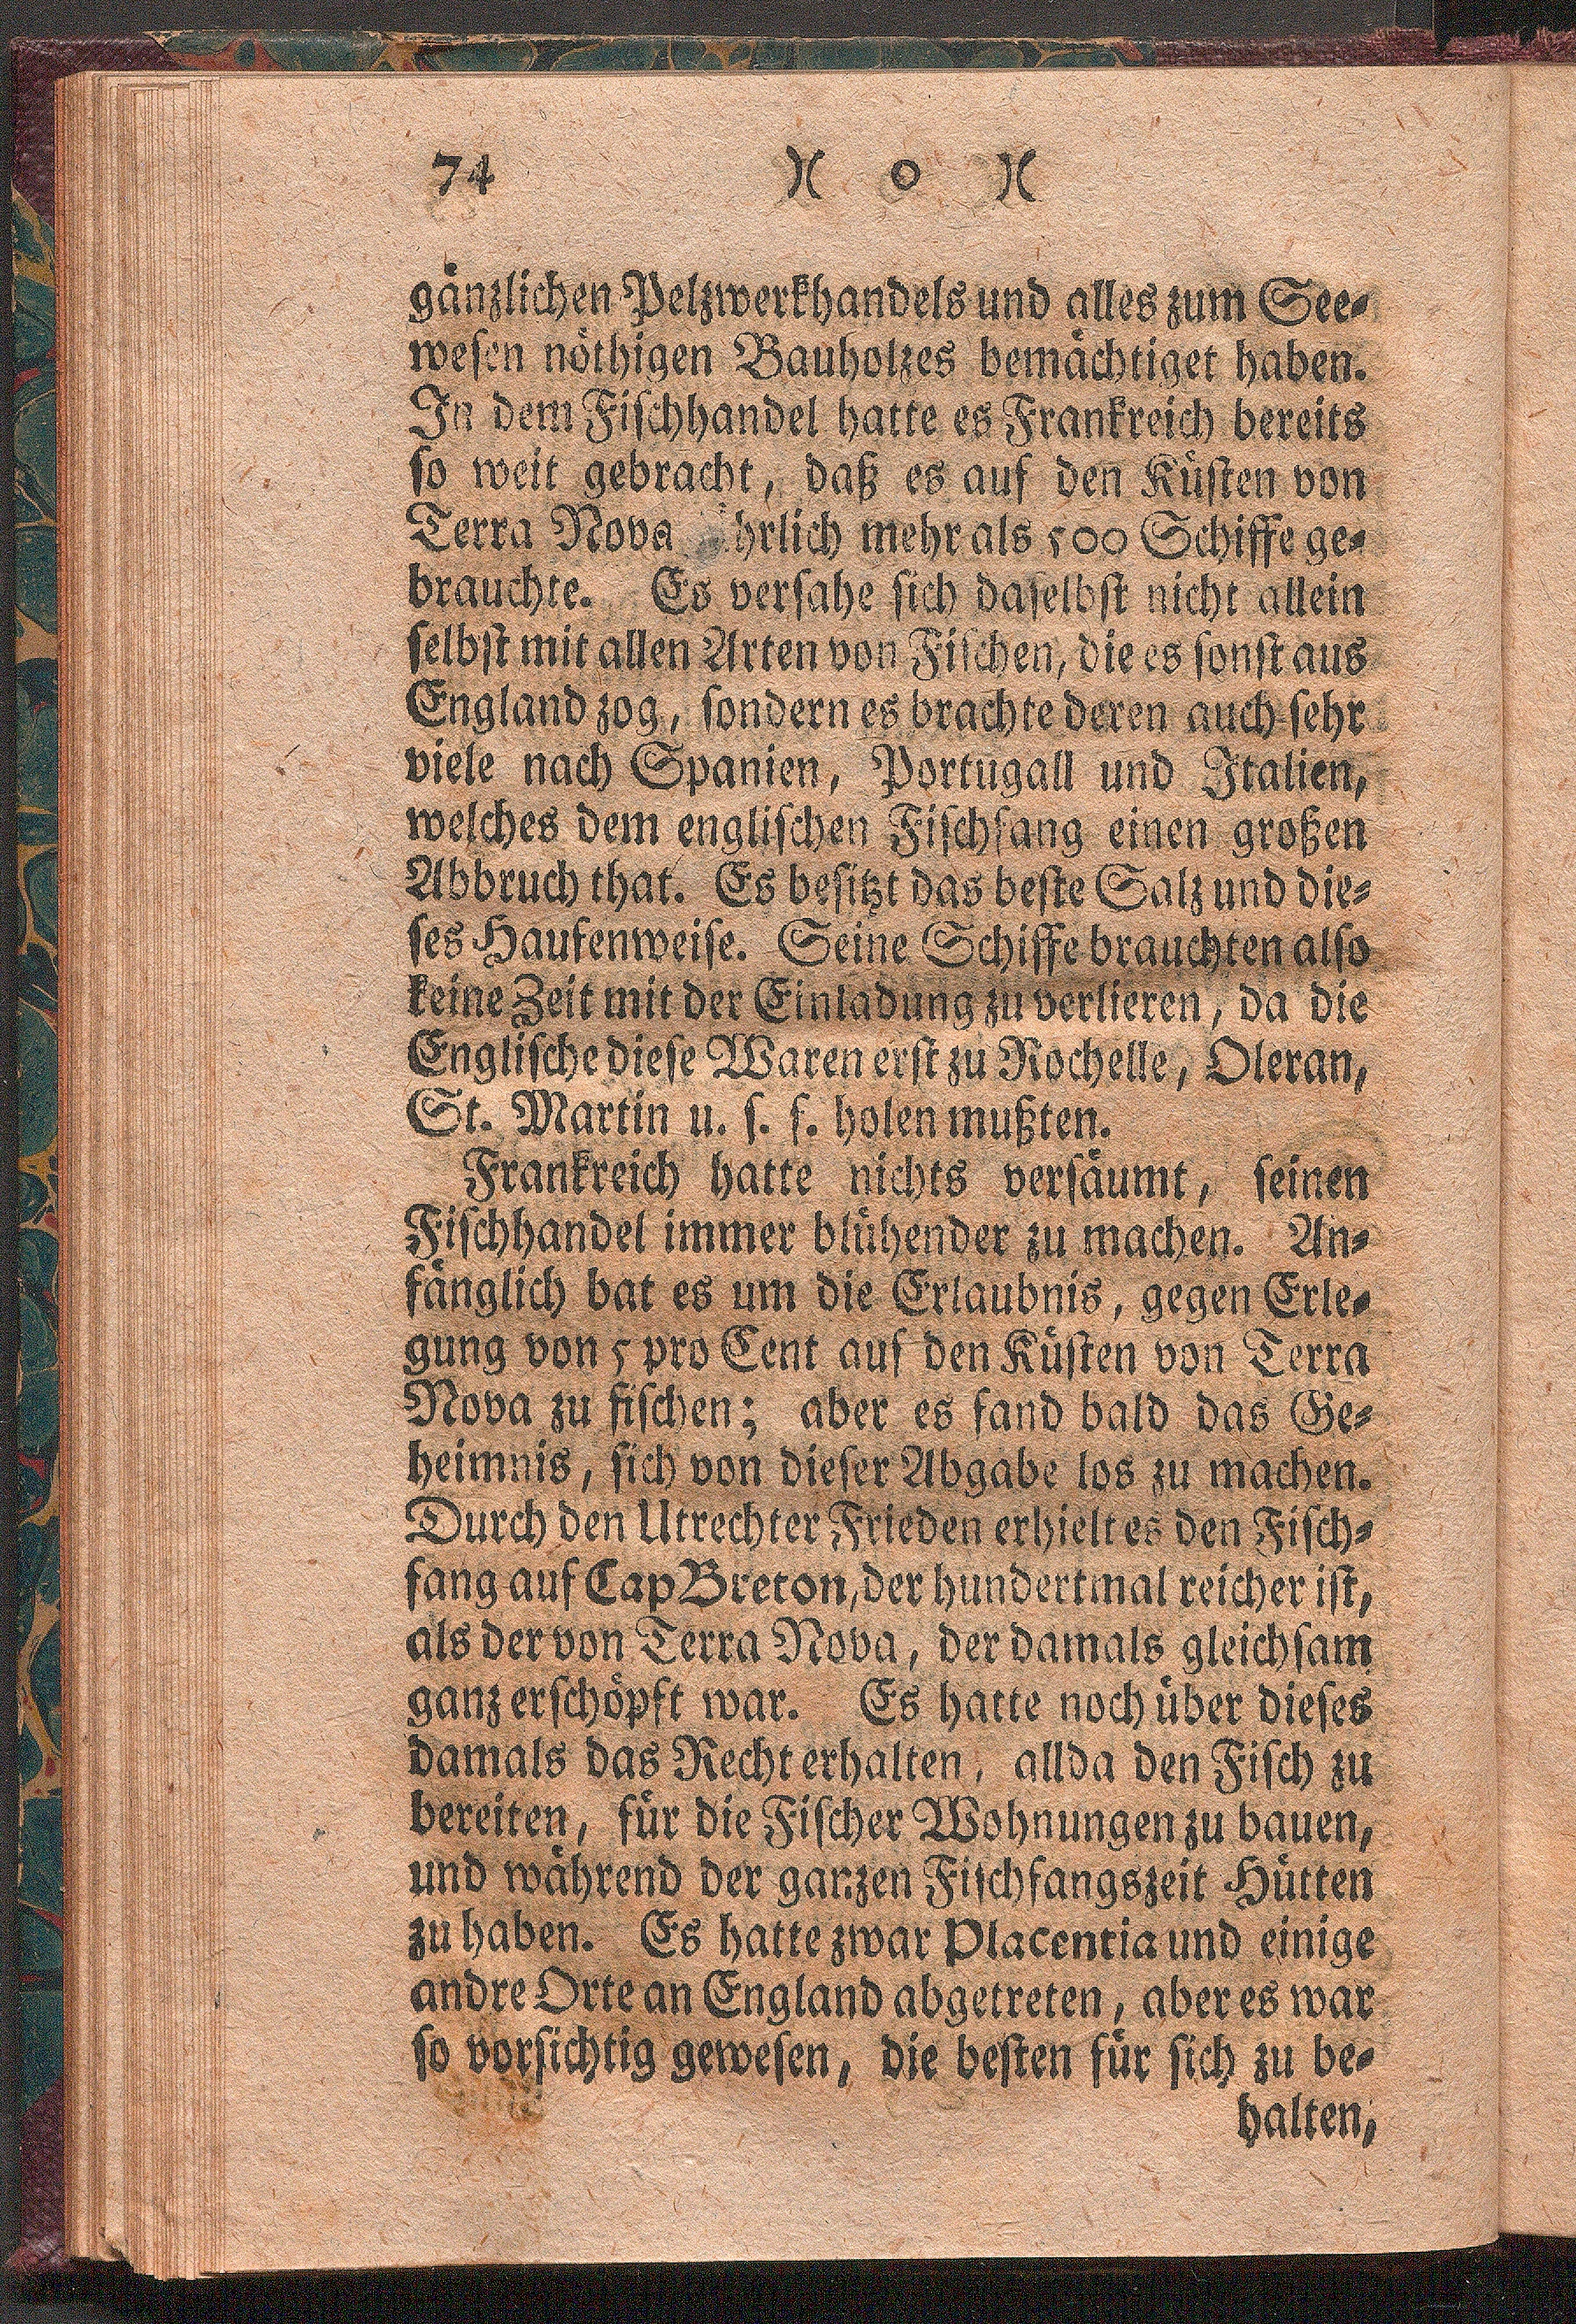 74 )( 0 )(
gänzlichen Pelzwerkhandels und alles zum See⸗
weſen nöthigen Bauholzes bemächtiget haben.
In dem Fiſchhandel hatte es Frankreich bereits
ſo weit gebracht, daß es auf den Küſten von
Terra Nova hrlich mehr als 500 Schiffe ge⸗
brauchte. Es verſahe ſich daſelbſt nicht allein
ſelbſt mit allen Arten von Fiſchen, die es ſonſt aus
England zog, ſondern es brachte deren auch ſehr
viele nach Spanien, Portugall und Italien,
welches dem engliſchen Fiſchfang einen großen
Abbruch that. Es beſitzt das beſte Salz und die⸗
ſes Haufenweiſe. Seine Schiffe brauchten alſo
keine Zeit mit der Einladung zu verlieren, da die
Engliſche dieſe Waren erſt zu Rochelle, Oleran,
St. Martin u. ſ. f. holen mußten.
Frankreich hatte nichts verſäumt, ſeinen
Fiſchhandel immer blühender zu machen. An⸗
fänglich bat es um die Erlaubnis, gegen Erle⸗
gung von 5 pro Cent auf den Küſten von Terra
Nova zu fiſchen; aber es fand bald das Ge⸗
heimnis, ſich von dieſer Abgabe los zu machen.
Durch den Utrechter Frieden erhielt es den Fiſch⸗
fang auf Cap Breton, der hundertmal reicher iſt,
als der von Terra Nova, der damals gleichſam
ganz erſchöpft war. Es hatte noch über dieſes
damals das Recht erhalten, allda den Fiſch zu
bereiten, für die Fiſcher Wohnungen zu bauen,
und während der ganzen Fiſchfangszeit Hütten
zu haben. Es hatte zwar Placentia und einige
andre Orte an England abgetreten, aber es war
ſo vorſichtig geweſen, die beſten für ſich zu be⸗
halten,